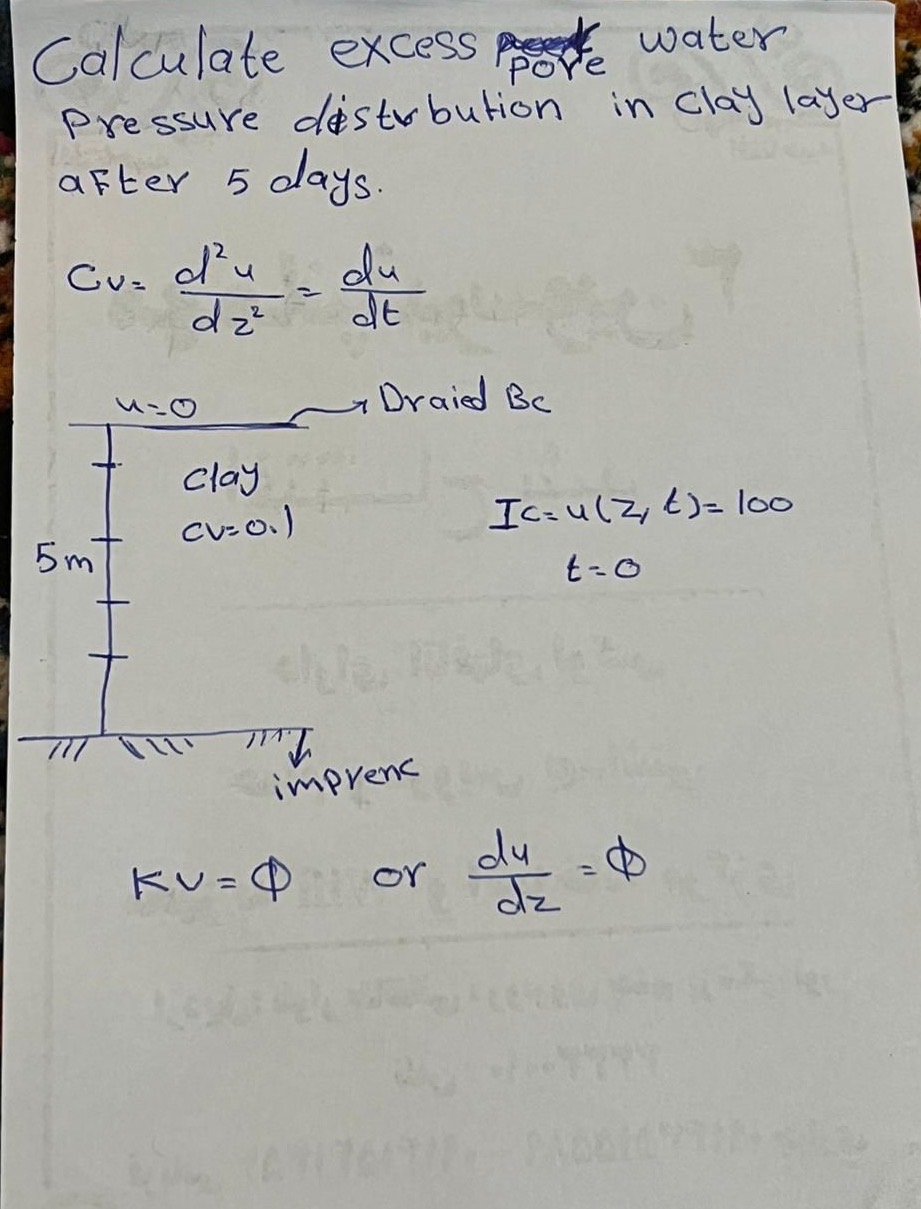 Calculate excess pore water
Pressure distrbution in clay layer
after 5 days.
Cv= d²u/dz² = du/dt
u=0 → Draied Bc
clay
Cv=0.1
Ic=u(z,t)=100
t=0
5m
KV=Φ or du/dz =Φ